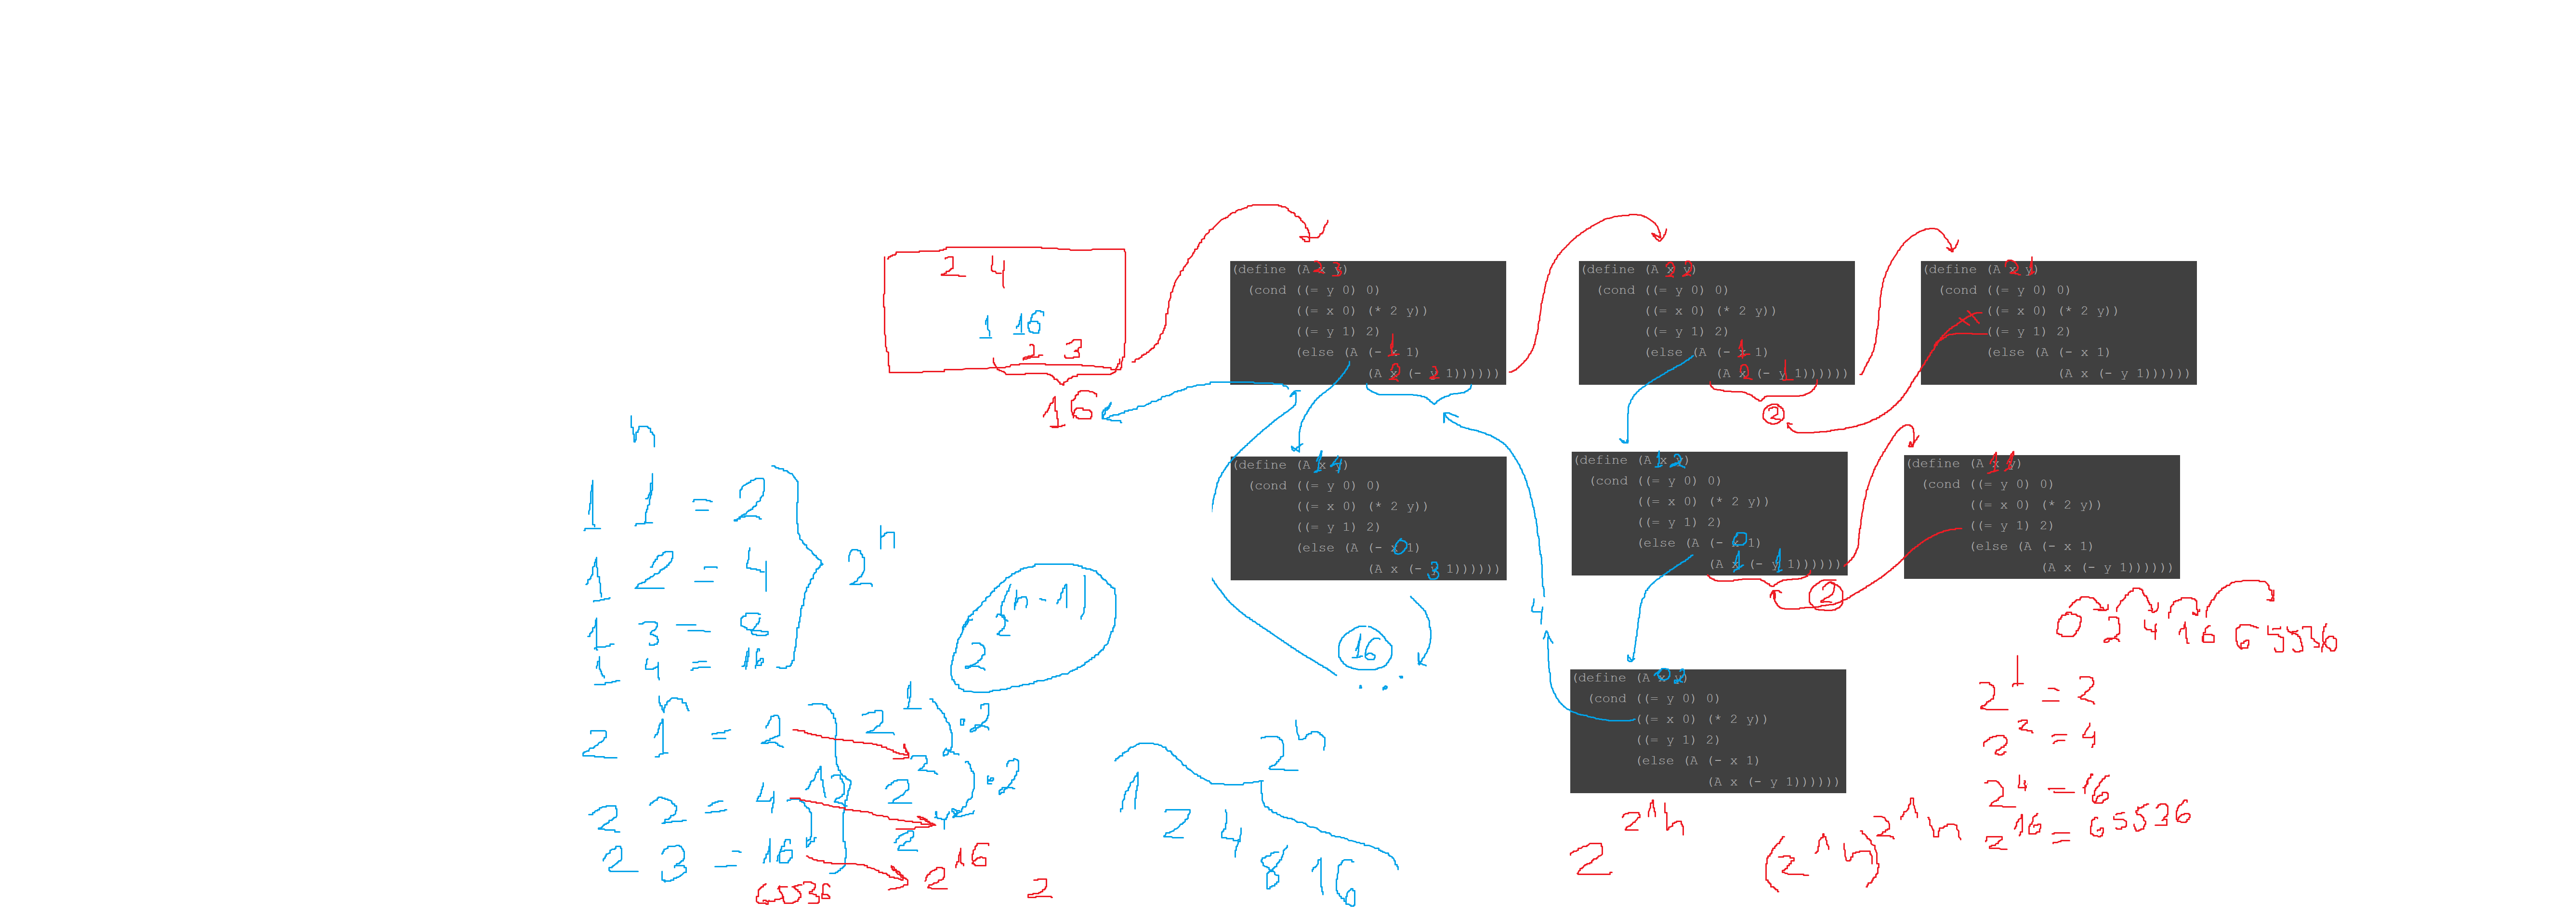 2 4
1 16
2 3
16
(define (A x y)
2 3
(cond ((= y 0) 0)
((= x 0) (* 2 y))
((= y 1) 2)
(else (A (- x 1)
1
(A x (- y 1))))))
2 2
(define (A x y)
2 2
(cond ((= y 0) 0)
((= x 0) (* 2 y))
((= y 1) 2)
(else (A (- x 1)
1
(A x (- y 1))))))
2 1
2
(define (A x y)
2 1
(cond ((= y 0) 0)
((= x 0) (* 2 y))
((= y 1) 2)
(else (A (- x 1)
(A x (- y 1))))))
(define (A x y)
1 4
(cond ((= y 0) 0)
((= x 0) (* 2 y))
((= y 1) 2)
(else (A (- x 1)
0
(A x (- y 1))))))
3
16
...
4
(define (A x y)
1 2
(cond ((= y 0) 0)
((= x 0) (* 2 y))
((= y 1) 2)
(else (A (- x 1)
0
(A x (- y 1))))))
1 1
2
(define (A x y)
1 1
(cond ((= y 0) 0)
((= x 0) (* 2 y))
((= y 1) 2)
(else (A (- x 1)
(A x (- y 1))))))
(define (A x y)
0 2
(cond ((= y 0) 0)
((= x 0) (* 2 y))
((= y 1) 2)
(else (A (- x 1)
(A x (- y 1))))))
n
1 1 = 2
1 2 = 4
1 3 = 8
1 4 = 16
2^n
2^2^(n-1)
n
2 1 = 2
2 2 = 4
2 3 = 16
65536
12
2^1
·2
2^2
·2
2^4
2^16
2
2^n
1 2 4 8 16
2^2^n
(2^n)^2^n
0 2 4 16 65536
2^1 = 2
2^2 = 4
2^4 = 16
2^16 = 65536